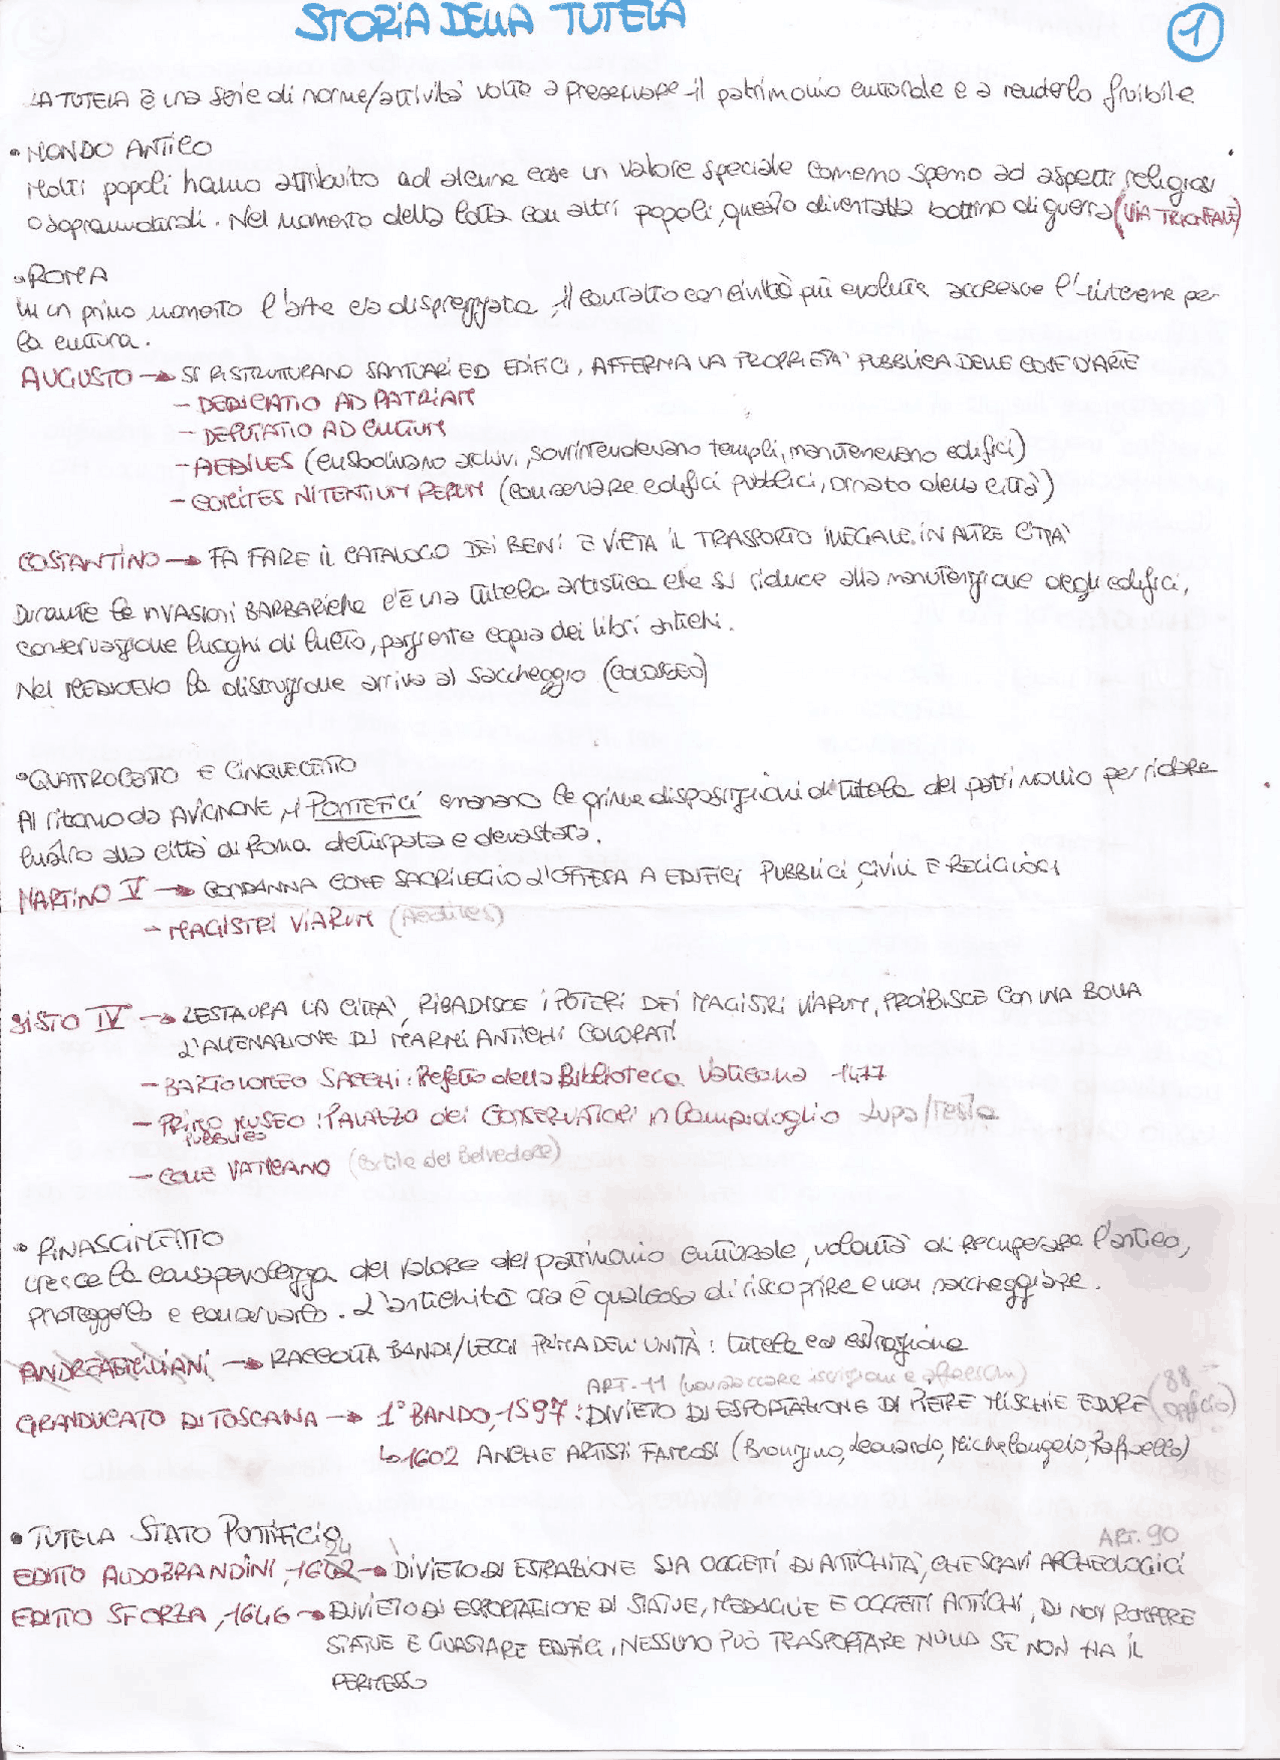 STORIA DELLA TUTELA
1
LA TUTELA È una serie di norme/attività volte a preservare il patrimonio culturale e a renderlo fruibile
• MONDO ANTICO
Molti popoli hanno attribuito ad alcune cose un valore speciale connesso spesso ad aspetti religiosi
o soprannaturali. Nel momento della lotta con altri popoli, questo diventata bottino di guerra (VIA TRIONFALE)
• ROMA
In un primo momento l'arte era disprezzata, il contatto con civiltà più evolute accresce l'interesse per
la cultura.
AUGUSTO → SI RISTRUTTURANO SANTUARI ED EDIFICI, AFFERMA LA PROPRIETA' PUBBLICA DELLE COSE D'ARTE
- DEDICATIO AD PATRIAM
- DEPUTATIO AD CULTUM
- AEDILES (custodivano archivi, sovrintendevano templi, mantenevano edifici)
- COMITES NITENTIUM RERUM (conservare edifici pubblici, ornato della città)
COSTANTINO → FA FARE IL CATALOGO DEI BENI E VIETA IL TRASPORTO ILLEGALE IN ALTRE CITTA'
Durante le INVASIONI BARBARICHE c'è una tutela artistica che si riduce alla manutenzione degli edifici,
conservazione luoghi di culto, paziente copia dei libri antichi.
Nel MEDIOEVO la distruzione arriva al saccheggio (COLOSSEO)
• QUATTROCENTO E CINQUECENTO
Al ritorno da AVIGNONE, i PONTEFICI emanano le prime disposizioni di tutela del patrimonio per ridare
lustro alla città di Roma deturpata e devastata.
MARTINO V → CONDANNA COME SACRILEGIO L'OFFESA A EDIFICI PUBBLICI, CIVILI E RELIGIOSI
- MAGISTRI VIARUM (Aediles)
SISTO IV → RESTAURA LA CITTA', RIBADISCE I POTERI DEI MAGISTRI VIARUM, PROIBISCE CON UNA BOLLA
L'ALIENAZIONE DI MARMI ANTICHI COLORATI
- BARTOLOMEO SACCHI: Prefetto della Biblioteca Vaticana 1477
- PRIMO MUSEO: PALAZZO dei CONSERVATORI in Campidoglio Lupa/Testa
PUBBLICO
- COLLE VATICANO (Cortile del Belvedere)
• RINASCIMENTO
Cresce la consapevolezza del valore del patrimonio culturale, volontà di recuperare l'antico,
proteggerlo e conservarlo. L'antichità ora è qualcosa di riscoprire e non saccheggiare.
ANDREA EMILIANI → RACCOLTA BANDI/LEGGI PRIMA DELL'UNITÀ: tutela ed estrazione
ART. 11 (non staccare iscrizioni e affreschi)
GRANDUCATO DI TOSCANA → 1° BANDO, 1597: DIVIETO DI ESPORTAZIONE DI PIETRE MISCHIE E DURE (88 Opificio)
↳ 1602 ANCHE ARTISTI FAMOSI (Bronzino, Leonardo, Michelangelo, Raffaello)
• TUTELA STATO PONTIFICIO
24
ART. 90
EDITTO ALDOBRANDINI, 1602 → DIVIETO DI ESTRAZIONE SIA OGGETTI DI ANTICHITA', CHE SCAVI ARCHEOLOGICI
EDITTO SFORZA, 1646 → DIVIETO DI ESPORTAZIONE DI STATUE, MEDAGLIE E OGGETTI ANTICHI, DI NON ROMPERE
STATUE E GUASTARE EDIFICI, NESSUNO PUÒ TRASPORTARE NULLA SE NON HA IL
PERMESSO